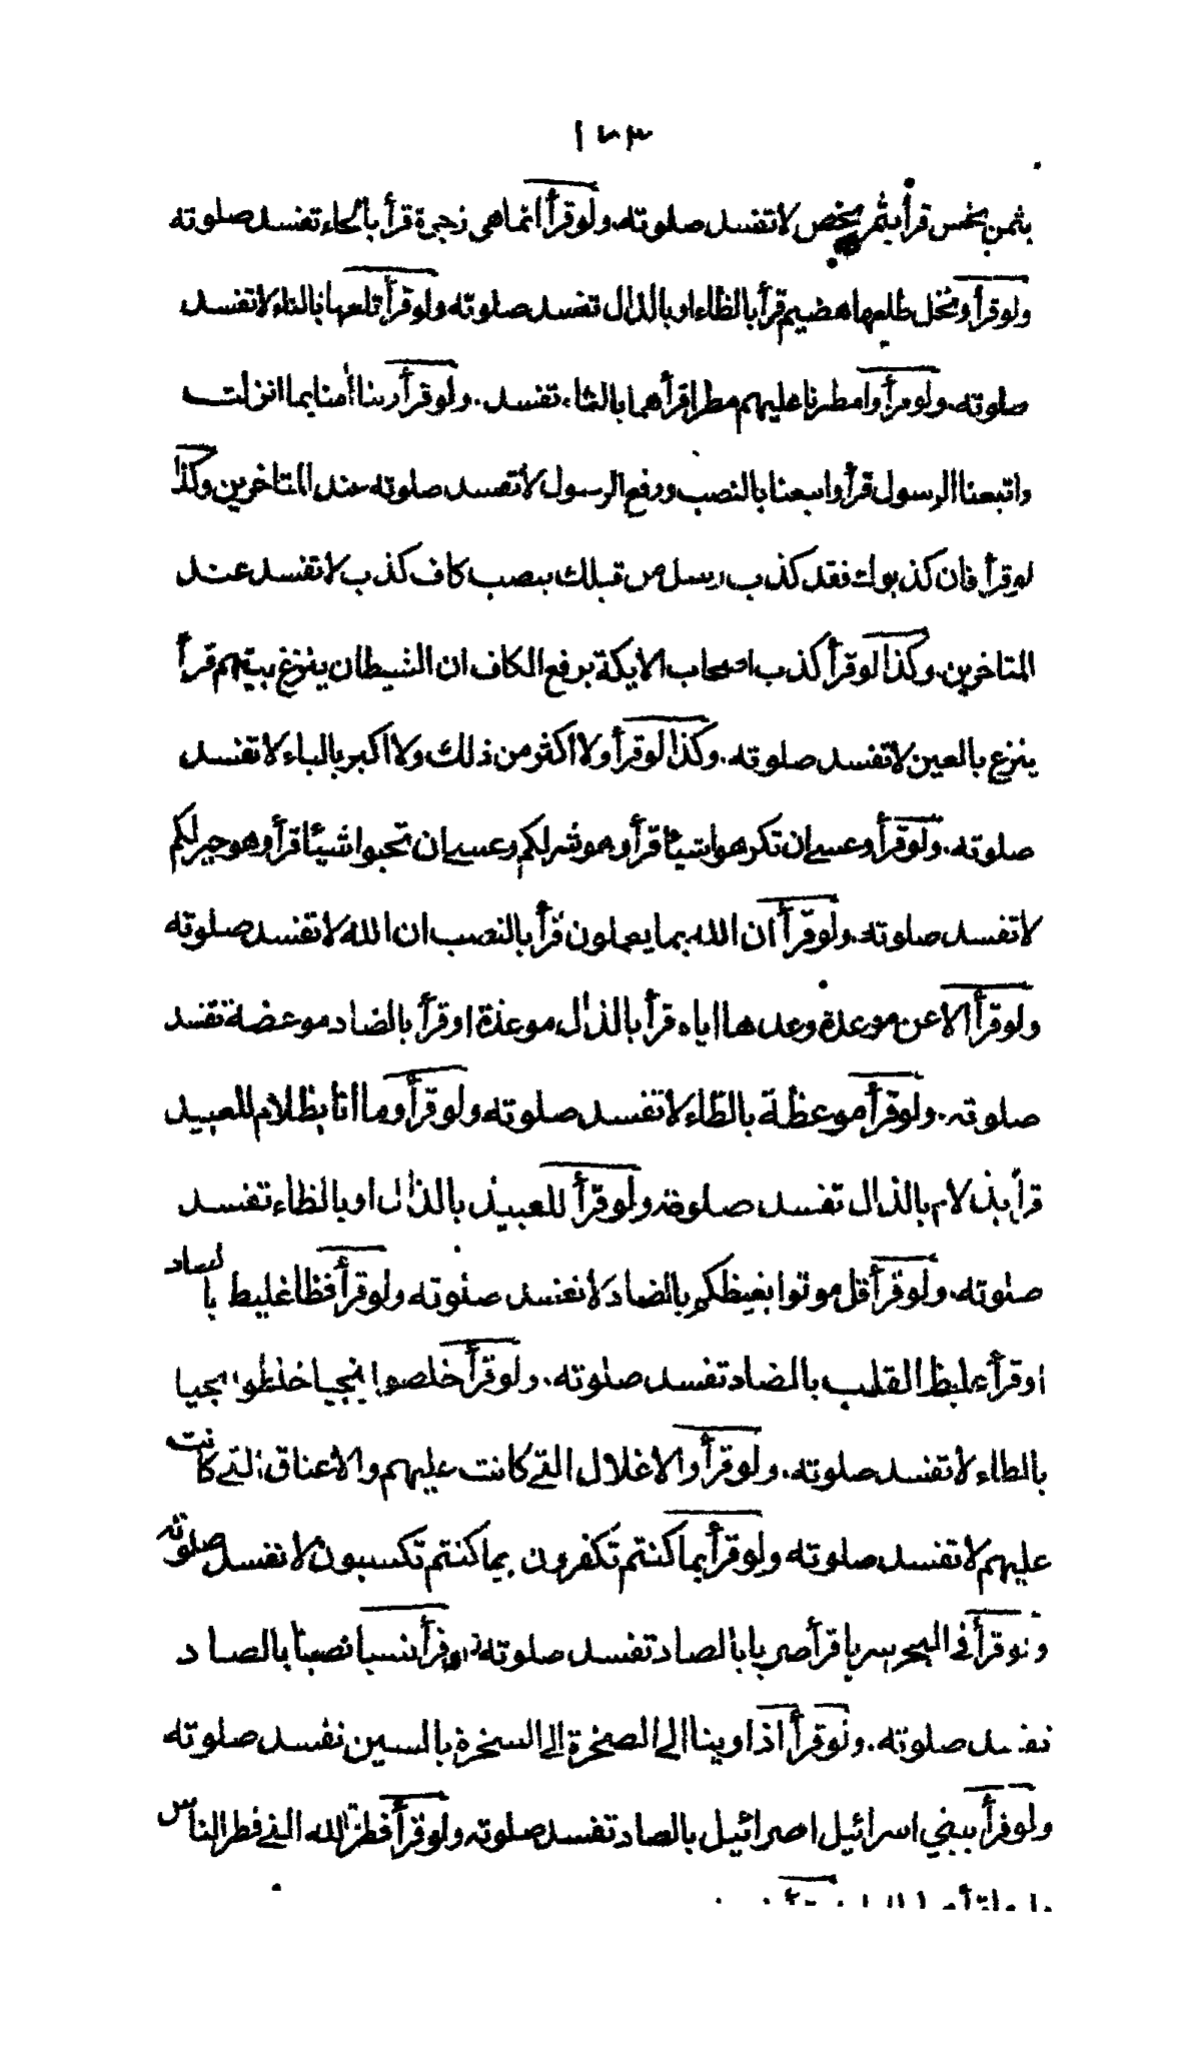 ١٦٣
بثمن بخس قرأ بثمر بخص لا تفسد صلوته. ولو قرأ انما هى زجرة قرأ بالحاء تفسد صلوته
ولو قرأ ونخل طلعها هضيم قرأ بالظاء او بالذال تفسد صلوته ولو قرأ تلعها بالتاء لا تفسد
صلوته. ولو قرأ وامطرنا عليهم مطرا قرأهما بالثاء، تفسد. ولو قرأ ربنا أمنا بما انزلت
واتبعنا الرسول قرأ واتبعنا بالنصب ورفع الرسول لا تفسد صلوته عند المتاخرين وكذا
لو قرأ فان كذبوك فقد كذب رسل من قبلك بنصب كاف كذب لا تفسد عند
المتاخرين. وكذا لو قرأ كذب اصحاب الايكة برفع الكاف ان الشيطان ينزغ بينهم قرأ
ينزع بالعين لا تفسد صلوته. وكذا لو قرأ ولا اكثر من ذلك ولا اكبر بالباء لا تفسد
صلوته. ولو قرأ وعسى ان تكرهوا شيئا قرأ وهو شر لكم وعسى ان تحبوا شيئا قرأ وهو خير لكم
لا تفسد صلوته. ولو قرأ ان الله بما يعملون قرأ بالنصب ان الله لا تفسد صلوته
ولو قرأ الا عن موعدة وعدها اياه قرأ بالذال موعذة او قرأ بالضاد موعضة تفسد
صلوته. ولو قرأ موعظة بالظاء لا تفسد صلوته ولو قرأ وما انا بظلام للعبيد
قرأ بذلام بالذال تفسد صلوته ولو قرأ للعبيذ بالذال او بالظاء تفسد
صلوته. ولو قرأ قل موتوا بغيظكم بالضاد لا تفسد صلوته ولو قرأ فظا غليظ بالضاد
او قرأ غليظ القلب بالضاد تفسد صلوته. ولو قرأ خلصوا نجيا خلطوا نجيا
بالطاء لا تفسد صلوته. ولو قرأ والاغلال التى كانت عليهم والاعناق التى كانت
عليهم لا تفسد صلوته ولو قرأ بما كنتم تكفرون بما كنتم تكسبون لا تفسد صلوته
ولو قرأ فى البحر سربا قرأ صربا بالصاد تفسد صلوته او قرأ نسبا نصبا بالصاد
تفسد صلوته. ولو قرأ اذ اوينا الى الصخرة الى السخرة بالسين تفسد صلوته
ولو قرأ ببنى اسرائيل اصرائيل بالصاد تفسد صلوته ولو قرأ فطرة الله التى فطر الناس